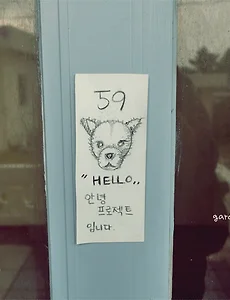 59
"HELLO..
안녕
프로젝트
입니다.